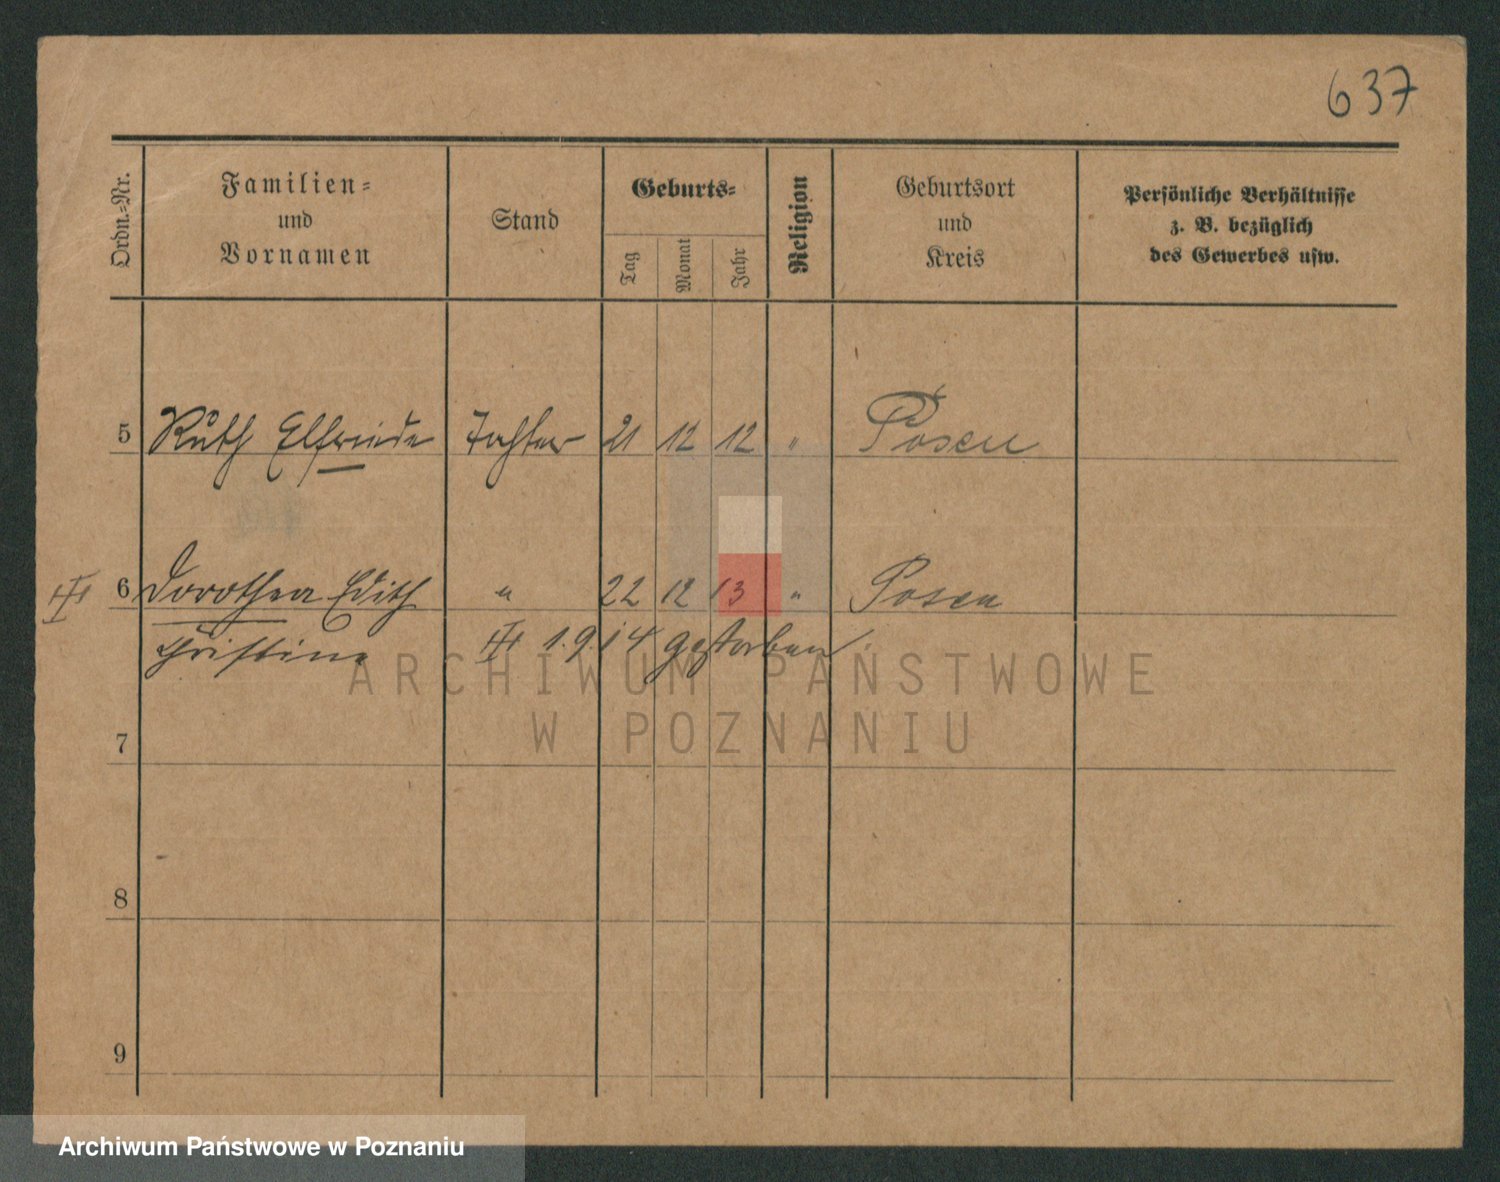 637
Ordn.-Nr. Familien- und Vornamen Stand Geburts- Tag Monat Jahr Religion Geburtsort und Kreis Persönliche Verhältnisse z. B. bezüglich des Gewerbes usw.
5 Ruth Elfriede Tochter 21 12 12 " Posen
6 Dorothea Edith " 22 12 13 " Posen
Christine 1.9.14 gestorben
ARCHIWUM PAŃSTWOWE
W POZNANIU
7
8
9
Archiwum Państwowe w Poznaniu